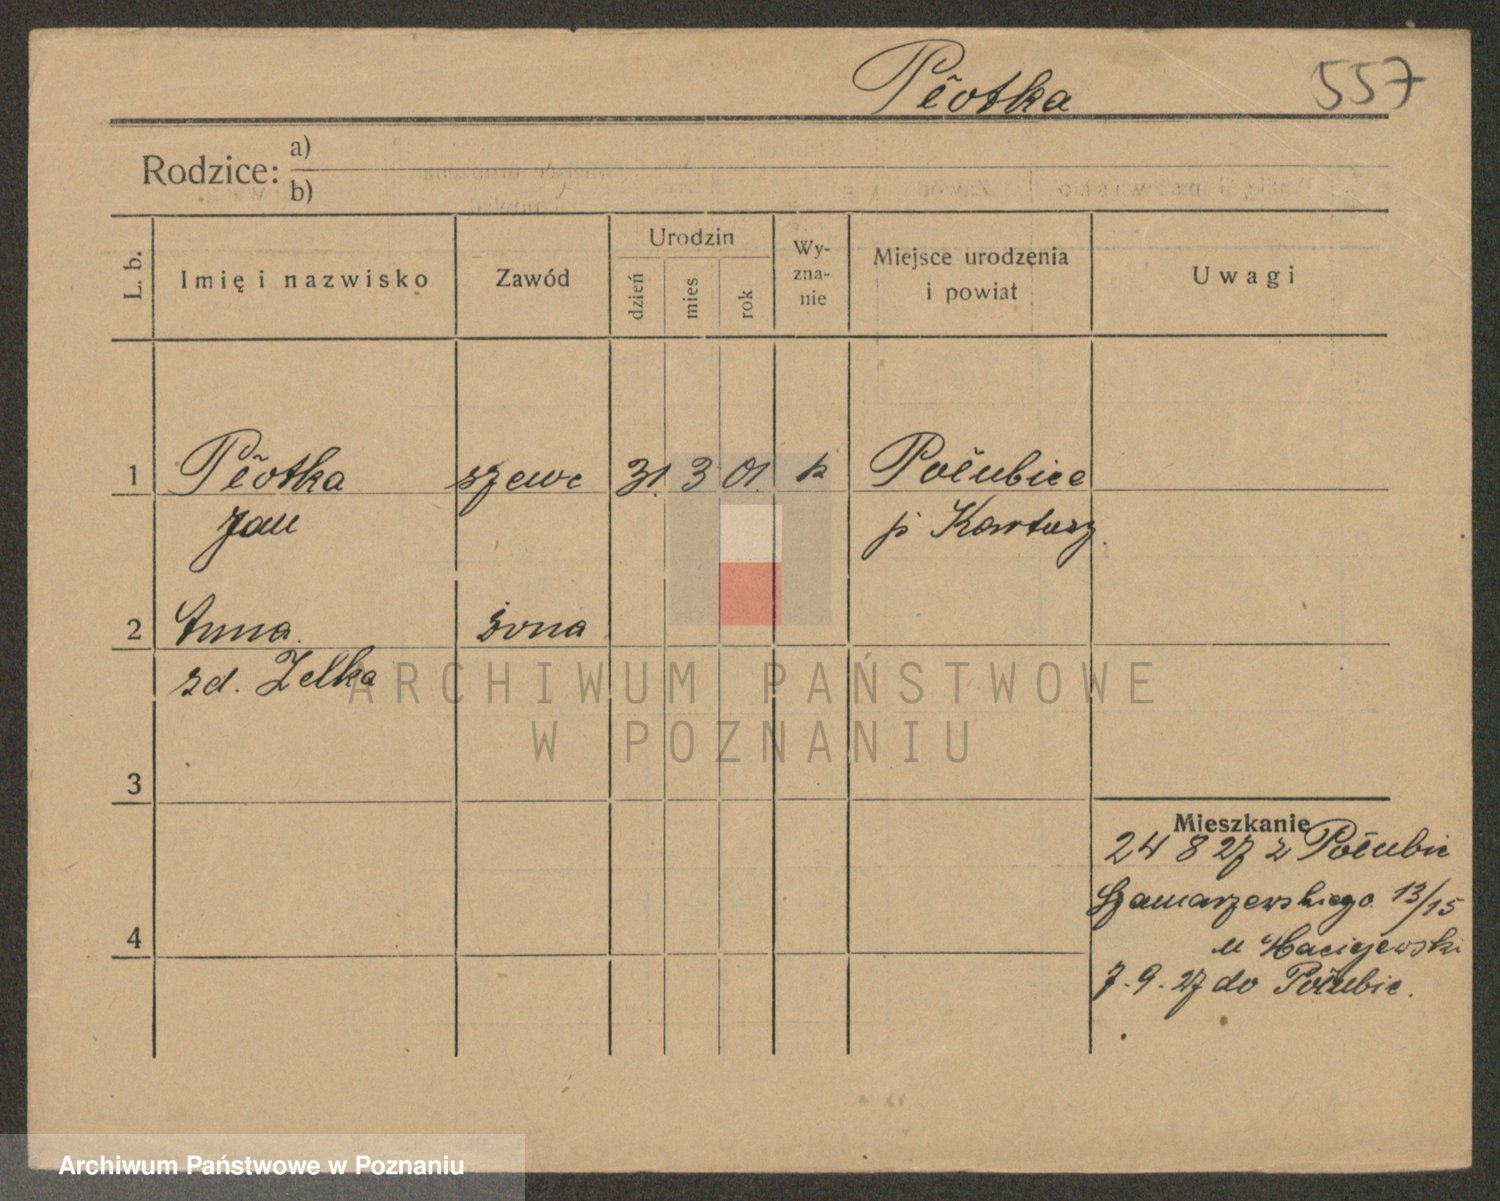 Płotka 557
Rodzice: a)
b)
L. b. Imię i nazwisko Zawód Urodzin dzień mies rok Wy-zna-nie Miejsce urodzenia i powiat Uwagi
1 Płotka szewc 31. 3 01. k Połubice
Jan p Kartuzy
2 Anna. żona
zd. Zelka
3
Mieszkanie
24 8 27 z Połubic
Szamarzewskiego 13/15
4
u Maciejewski
7. 9. 27 do Połubic.
ARCHIWUM PAŃSTWOWE
W POZNANIU
Archiwum Państwowe w Poznaniu